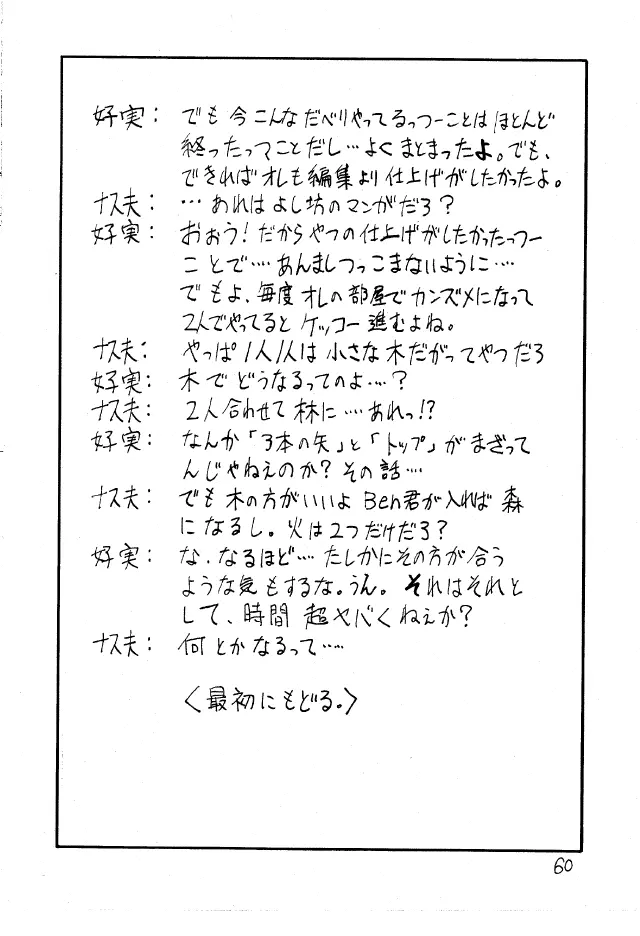 好実： でも今こんなだべりやってるっつーことはほとんど
終ったってことだし…よくまとまったよ。でも、
できればオレも編集より仕上げがしたかったよ。
ナス夫： …あれはよし坊のマンガだろ？
好実： おぉう！だからやつの仕上げがしたかったっつー
ことで…あんましつっこまないように…
でもよ、毎度オレの部屋でカンズメになって
2人でやってるとケッコー進むよね。
ナス夫： やっぱ1人1人は小さな木だがってやつだろ
好実： 木でどうなるってのよ…？
ナス夫： 2人合わせて林に…あれっ!?
好実： なんか「3本の矢」と「トップ」がまざって
んじゃねえのか？その話…
ナス夫： でも木の方がいいよBen君が入れば森
になるし。火は2つだけだろ？
好実： な、なるほど…たしかにその方が合う
ような気もするな。うん。それはそれと
して、時間超ヤバくねぇか？
ナス夫： 何とかなるって…
〈最初にもどる。〉
60